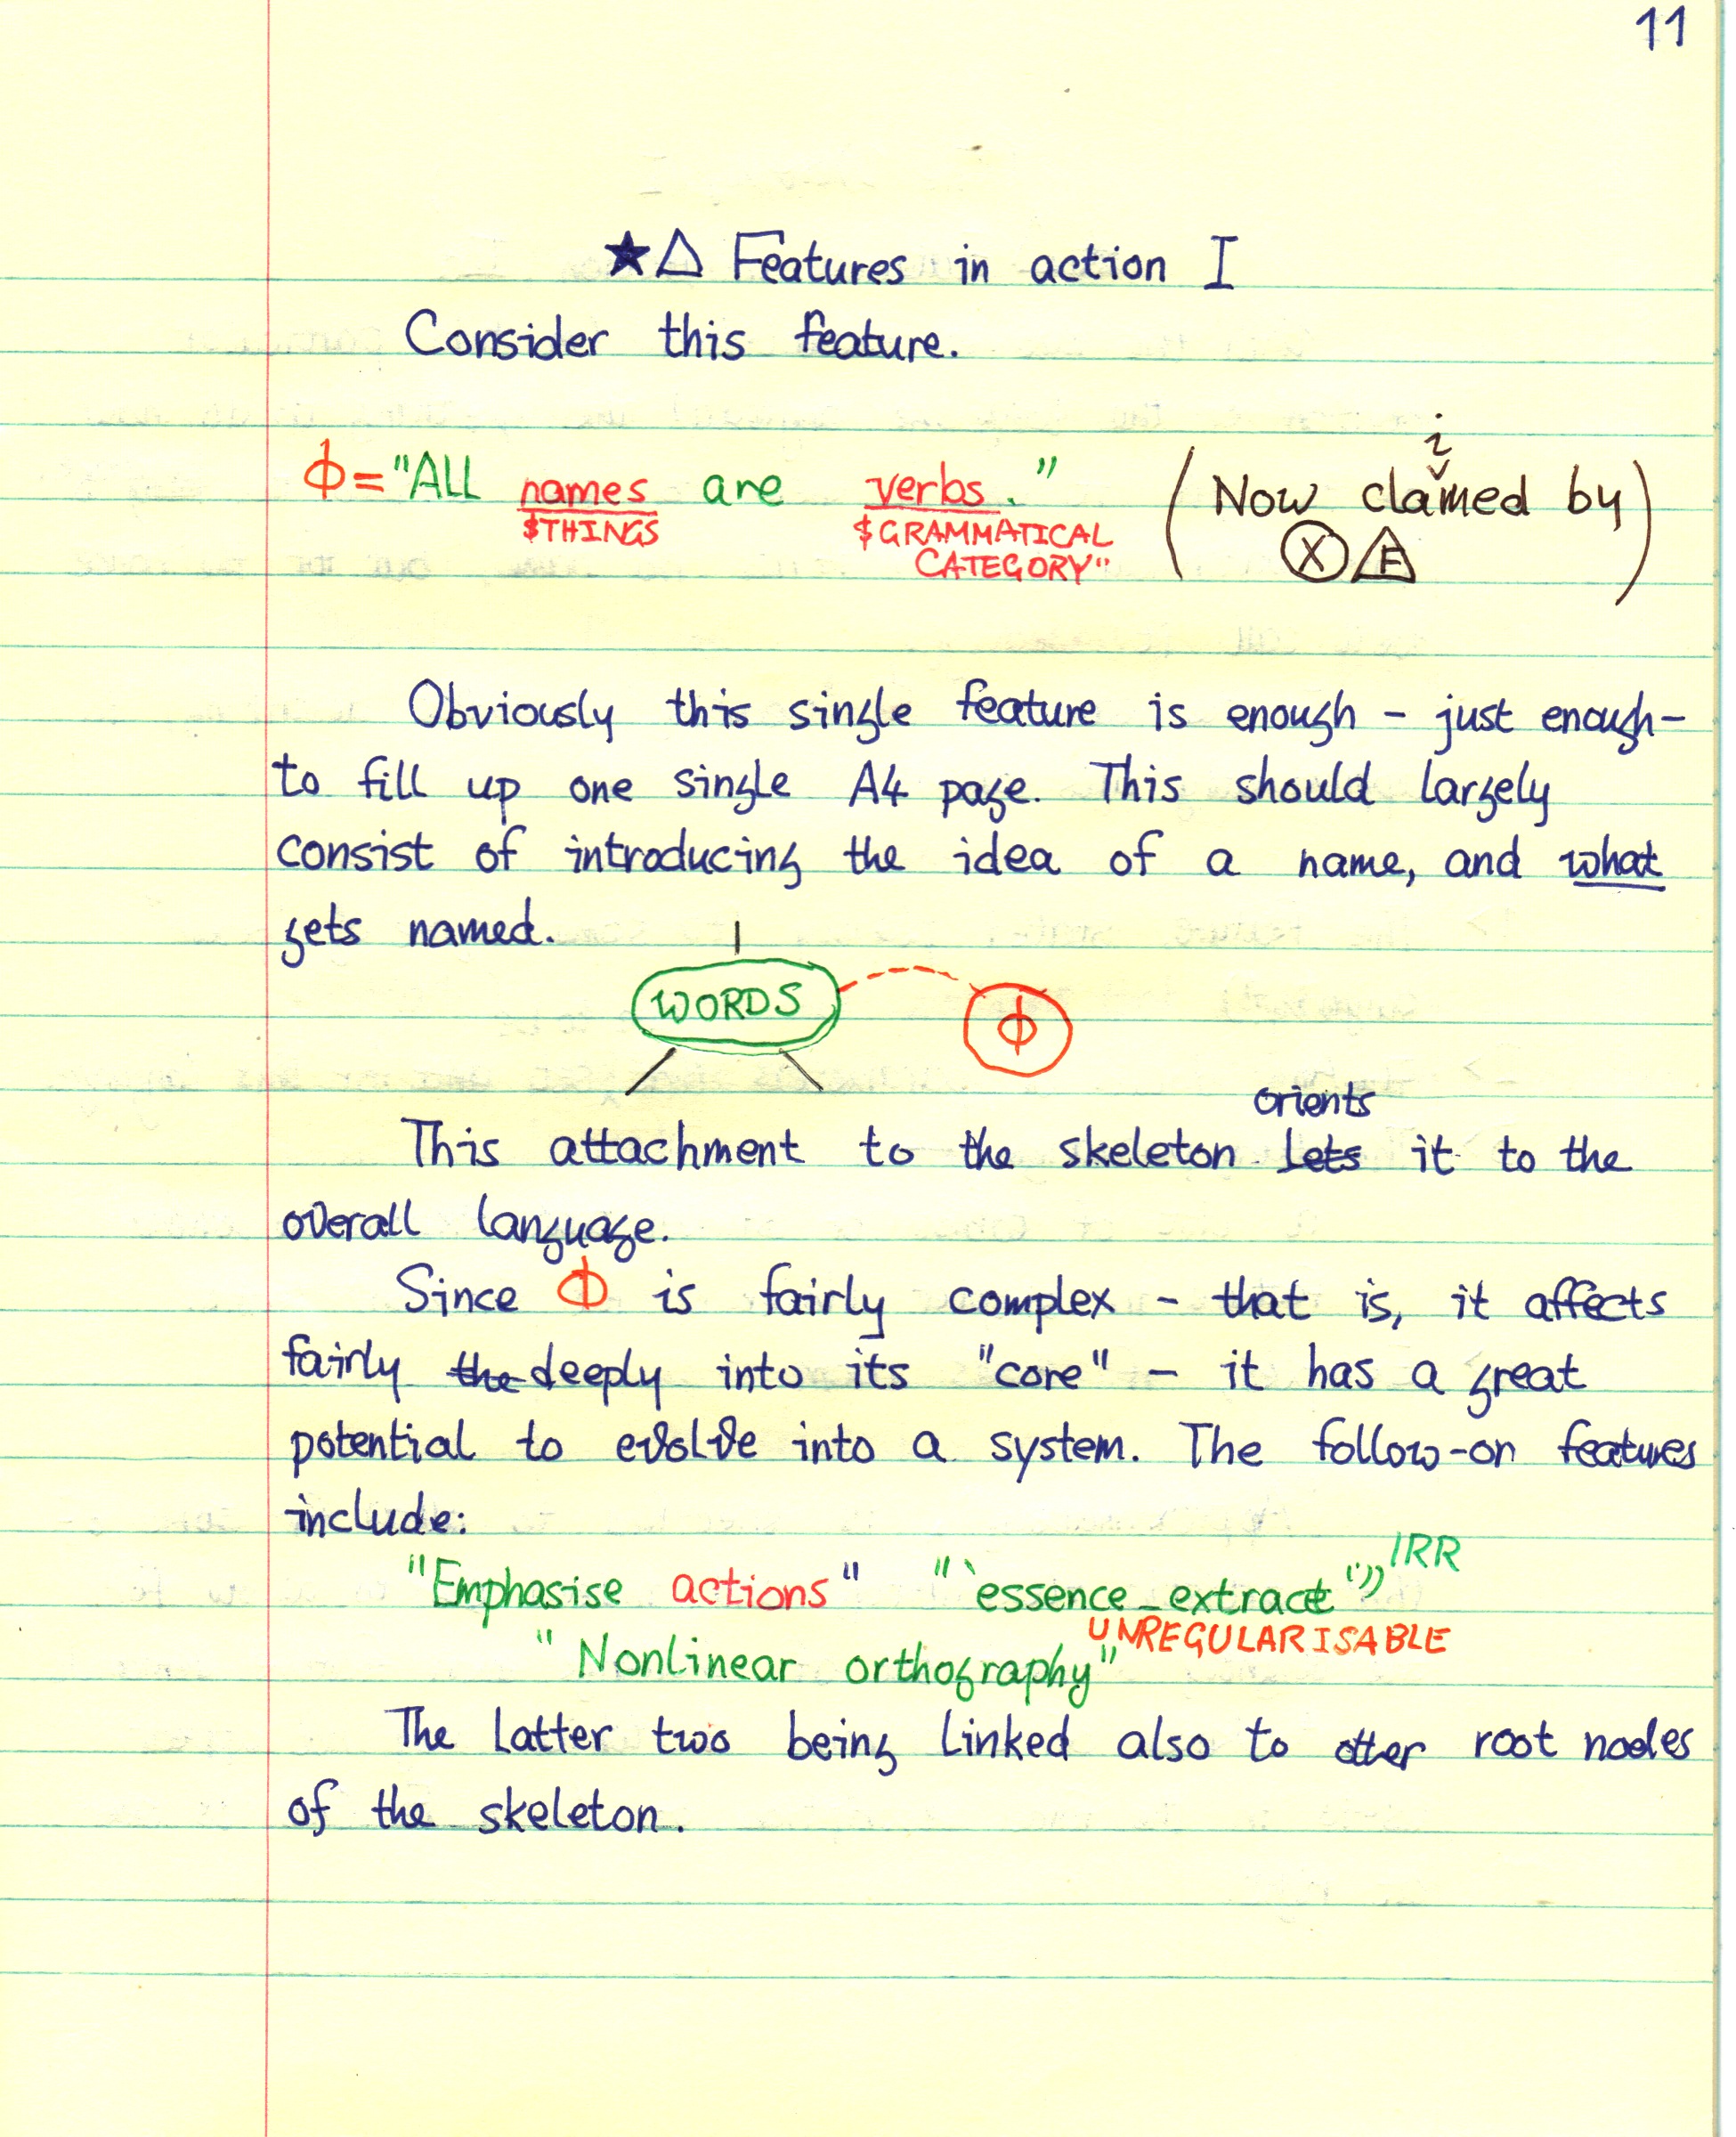 11
★△ Features in action I
Consider this feature.
ϕ="ALL names are verbs." (Now claimed by)
$THINGS $GRAMMATICAL CATEGORY" X E
Obviously this single feature is enough - just enough-
to fill up one single A4 page. This should largely
consist of introducing the idea of a name, and what
gets named.
WORDS ϕ
orients
This attachment to the skeleton lets it to the
overall language.
Since ϕ is fairly complex - that is, it affects
fairly the deeply into its "core" - it has a great
potential to evolve into a system. The follow-on features
include:
"Emphasise actions" "`essence_extract'" IRR
UNREGULARISABLE
"Nonlinear orthography"
The latter two being linked also to other root nodes
of the skeleton.